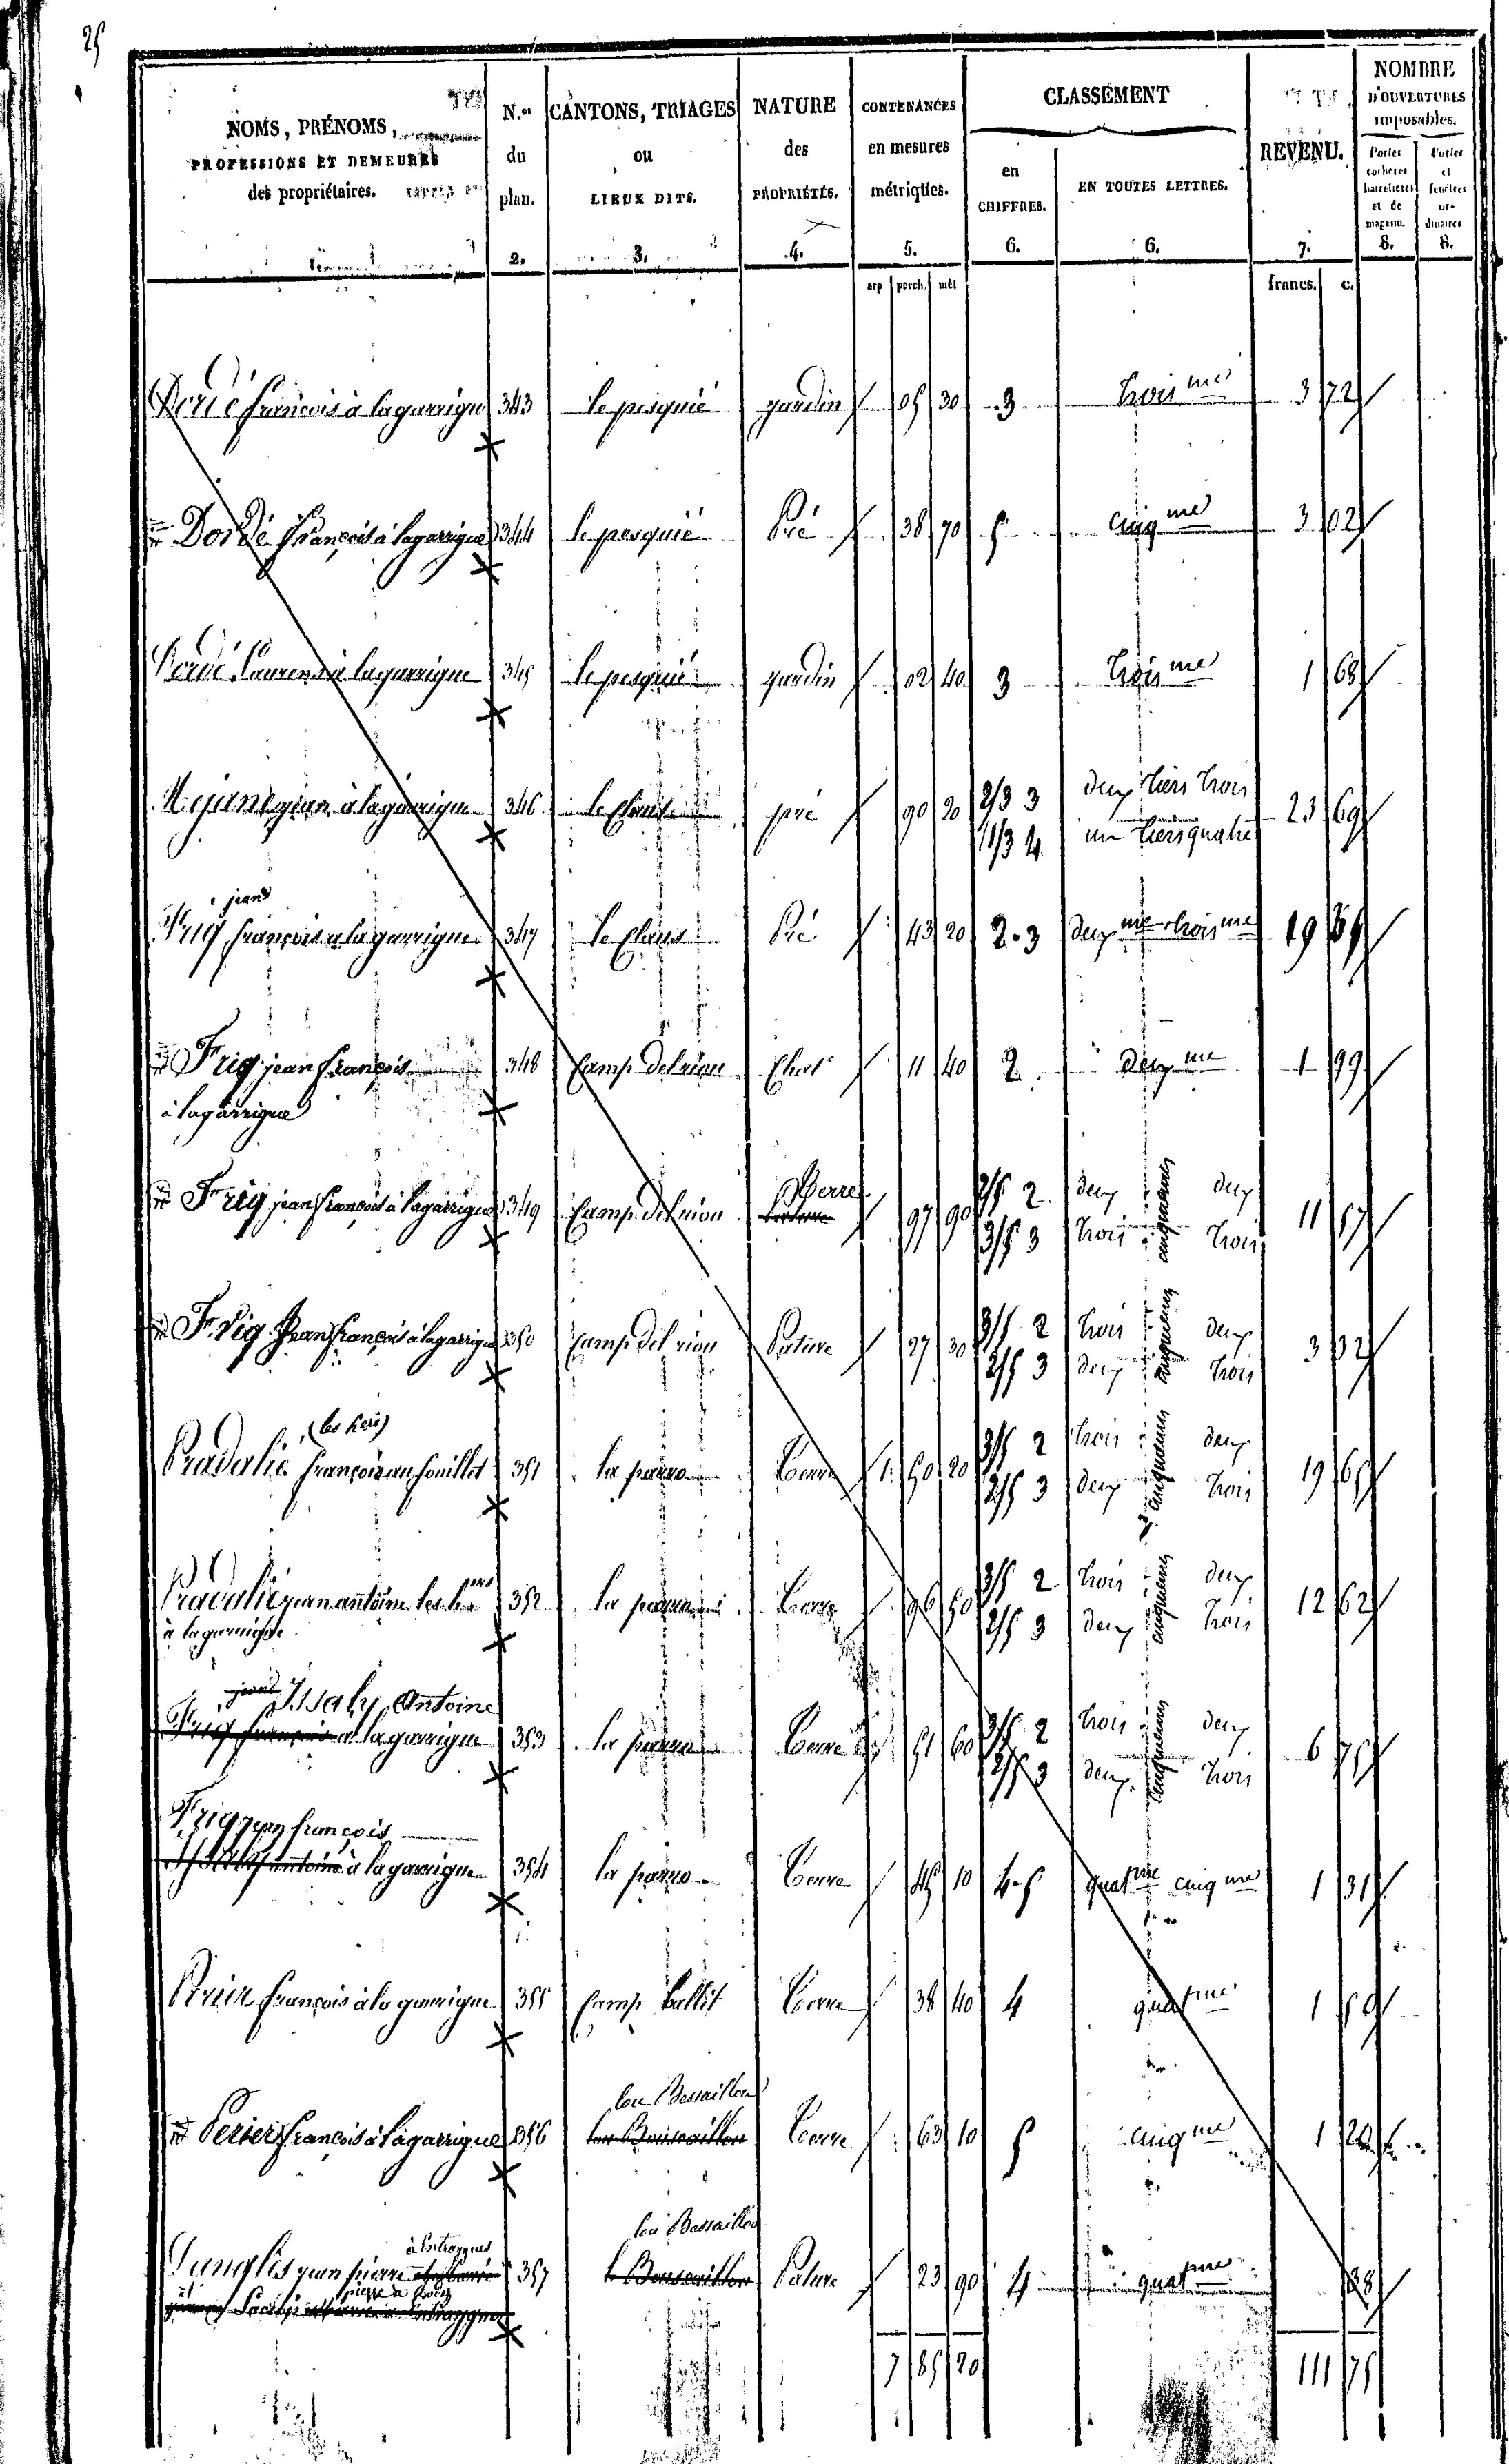 25
NOMS, PRÉNOMS,
PROFESSIONS ET DEMEURES
des propriétaires.
N.os
du
plan.
2.
CANTONS, TRIAGES
ou
LIEUX DITS.
3.
NATURE
des
PROPRIÉTÉS.
4.
CONTENANCES
en mesures
métriques.
5.
CLASSEMENT
en
CHIFFRES.
6.
EN TOUTES LETTRES.
6.
REVENU.
7.
NOMBRE
D'OUVERTURES
imposables.
Portes
cochères
et de
magasin.
8.
Portes
et
fenêtres
or-
dinaires
8.
arp perch. mèt
francs. c.
françois à lagarrigue 343 le pesquié jardin 05 30 3 trois me 3 72
Dordé françois à lagarrigue 344 le pesquié Pré 38 70 5 cinq me 3 02
à lagarrigue 345 le pesquié jardin 02 40 3 trois me 1 68
jean à lagarrigue 346 le Claux pré 90 20 2/3 3 deux tiers trois 23 69
1/3 4 un tiers quatre
jean
françois à lagarrigue 347 le Claux Pré 43 20 2.3 deux me trois me 19
Frig jean françois 348 Camp del rieu 11 40 2 deux me 1 99
à lagarrigue
Frig jean françois à lagarrigue 349 Camp del riou Terre 97 90 2/5 2 deux cinquemes deux 11 57
3/5 3 trois trois
Frig jean françois à lagarrigue 350 Camp del riou Pature 27 30 3/5 2 trois cinquemes deux 3 32
2/5 3 deux trois
(les hers)
Pradalié françois au fouillet 351 la parro Terre 1 50 20 3/5 2 trois cinquemes deux 19 65
2/5 3 deux trois
Pradalié jean antoine les hers 352 Terre 96 50 3/5 2 trois cinquemes deux 12 62
à lagarrigue 2/5 3 deux trois
Issaly Antoine
à lagarrigue 353 Terre 51 60 3/5 2 trois cinquemes deux 6 75
2/5 3 deux trois
Frig jean françois
à lagarrigue 354 la parro Terre 45 10 4-5 quat me cinq me 1 31
françois à la garrigue 355 Camp Terre 38 40 4 quat me 1 59
lou Bessaillou
Perier françois à lagarrigue 356 Terre 63 10 5 cinq me 1 20
lou Bessaillou
à Entraygues
jean pierre 357 Pature 23 90 4 quat me
pierre à
7 85 20 111 75